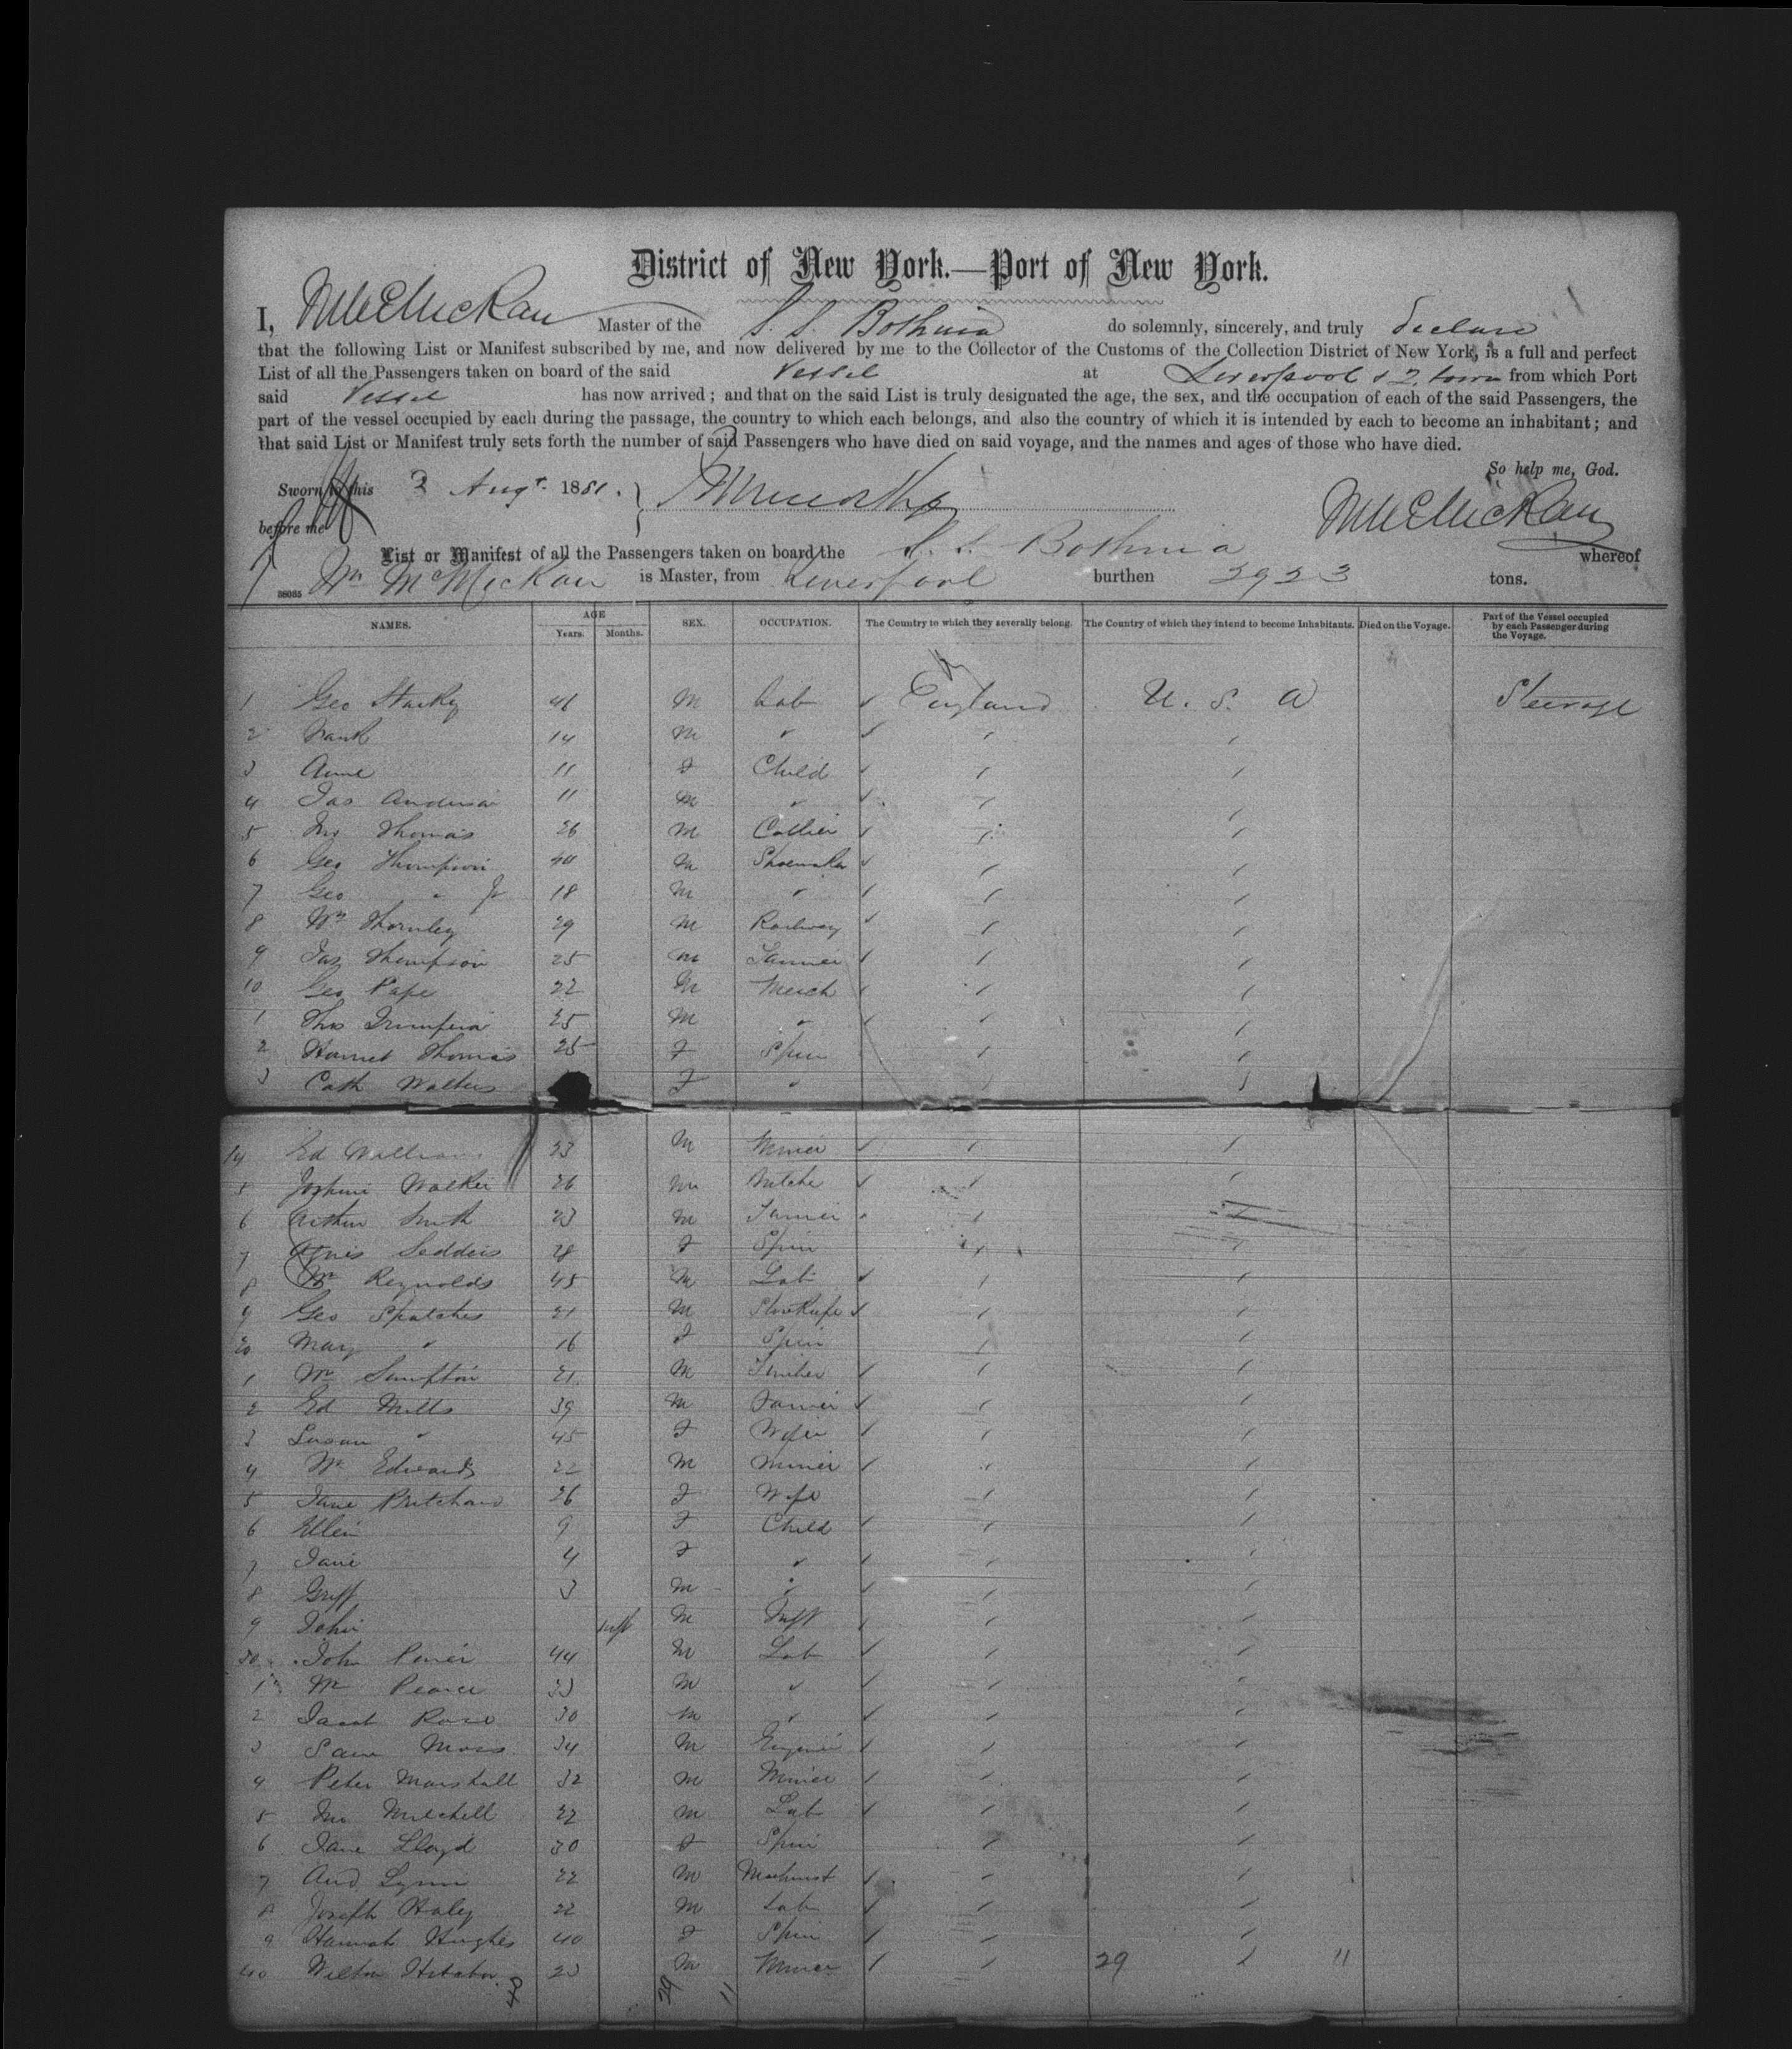 District of New York.—Port of New York.
I, Wm McMickan Master of the S. S. Bothnia do solemnly, sincerely, and truly declare
that the following List or Manifest subscribed by me, and now delivered by me to the Collector of the Customs of the Collection District of New York, is a full and perfect
List of all the Passengers taken on board of the said Vessel at Liverpool & Q. town from which Port
said Vessel has now arrived; and that on the said List is truly designated the age, the sex, and the occupation of each of the said Passengers, the
part of the vessel occupied by each during the passage, the country to which each belongs, and also the country of which it is intended by each to become an inhabitant; and
that said List or Manifest truly sets forth the number of said Passengers who have died on said voyage, and the names and ages of those who have died.
So help me, God.
Sworn to this 3 Augt. 1881.
before me
Wm McMickan
List or Manifest of all the Passengers taken on board the S. S. Bothnia whereof
38085 Wm McMickan is Master, from Liverpool burthen 3923 tons.
NAMES. AGE Years. Months. SEX. OCCUPATION. The Country to which they severally belong. The Country of which they intend to become Inhabitants. Died on the Voyage. Part of the Vessel occupied by each Passenger during the Voyage.
1 Geo Starkey 46 M Lab England U. S. A Steerage
2 Frank 14 M "
3 Anne 11 F Child
4 Jas Anderson 11 M "
5 Jno Thomas 26 M Collier
6 Geo Thompson 40 M Shoemaker
7 Geo " Jr 18 M "
8 Wm Thornley 29 M Railway
9 Jas Thompson 25 M
10 Geo Pape 22 M Merch
1 Thos 25 M "
2 Harriet Thomas 25 F Spin
3 Cath Walters F "
14 Ed Williams 23 M Miner
5 Walker 26 M
6 Arthur Smith 23 M
7 Agnes Seddeis 28 F Spin
8 Wm Reynolds 45 M Lab
9 Geo Spatches 21 M
20 Mary " 16 F Spin
1 Wm Sumpton 21 M
2 Ed Mills 39 M Farmer
3 Susan " 45 F Wife
4 Wm Edwards 22 M Miner
5 Jane Pritchard 26 F Wife
6 Ellen 9 F Child
7 Jane 4 F "
8 Griff 3 M "
9 John inft M Inft
30 John 44 M Lab
1 Wm Pearce 33 M "
2 Jacob Rose 30 M "
3 Sam Moss 34 M Engineer
4 Peter Marshall 32 M Miner
5 Jno Mitchell 22 M Lab
6 Jane Lloyd 30 F Spin
7 And Lynn 22 M Machinist
8 Joseph Haley 22 M Lab
9 Hannah Hughes 40 F Spin
40 23 M Miner 29 11
40 29 11